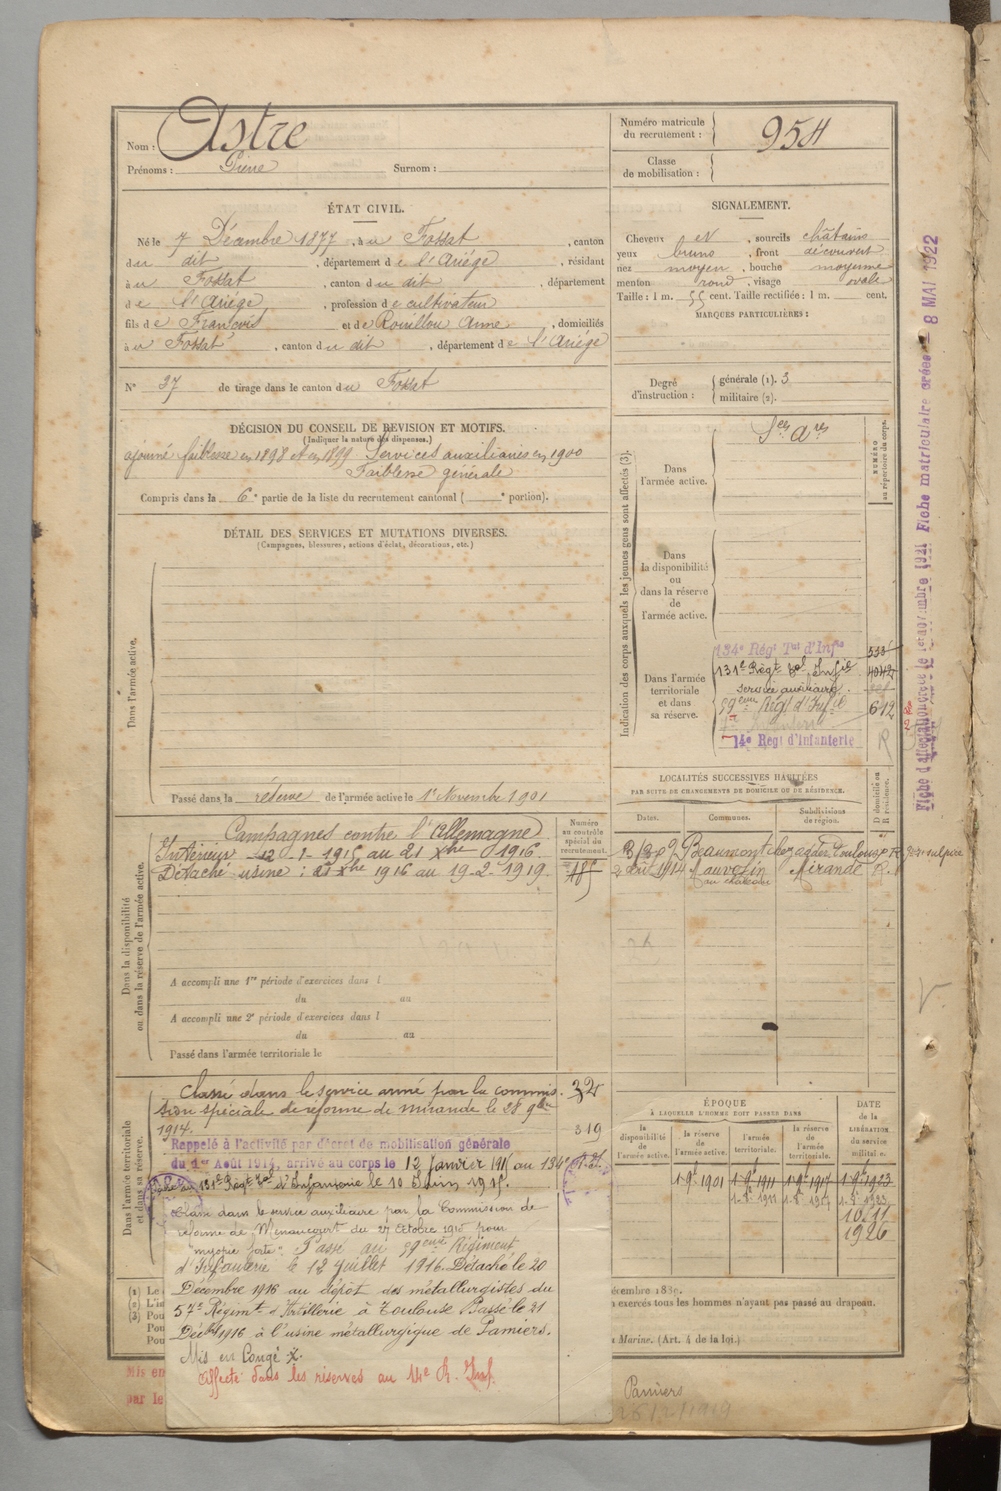 Nom : Astre
Prénoms : Pierre Surnom :
Numéro matricule
du recrutement : 954
Classe
de mobilisation :
ÉTAT CIVIL.
Né le 7 Décembre 1877, à u Fossat, canton
d u dit, département d e l'Ariége, résidant
à u Fossat, canton d u dit, département
d e l'Ariége, profession d e cultivateur
fils d e François et d e Rouillou Anne, domiciliés
à u Fossat, canton d u dit, département d e l'Ariége
N° 37 de tirage dans le canton d u Fossat
SIGNALEMENT.
Cheveux et, sourcils châtains
yeux bruns, front découvert
nez moyen, bouche moyenne
menton rond, visage ovale
Taille : 1 m. 55 cent. Taille rectifiée : 1 m. cent.
MARQUES PARTICULIÈRES :
Degré
d'instruction :
générale (1). 3
militaire (2).
DÉCISION DU CONSEIL DE REVISION ET MOTIFS.
(Indiquer la nature des dispenses.)
ajourné faiblesse en 1898 et en 1899 Services auxiliaires en 1900
Faiblesse générale
Compris dans la 6e partie de la liste du recrutement cantonal ( e portion).
DÉTAIL DES SERVICES ET MUTATIONS DIVERSES.
(Campagnes, blessures, actions d'éclat, décorations, etc.)
Dans l'armée active.
Passé dans la réserve de l'armée active le 1er Novembre 1901
Indication des corps auxquels les jeunes gens sont affectés (3).
NUMÉRO
au répertoire du corps.
Dans
l'armée active.
Sces Ares
Dans
la disponibilité
ou
dans la réserve
de
l'armée active.
Dans l'armée
territoriale
et dans
sa réserve.
134e Régt Tal d'Infie
131e Régt Tal Infie
service auxiliaire.
59eme Régt d'Infie 612
14e Régt d'Infanterie R
Dans la disponibilité
ou dans la réserve de l'armée active.
Campagnes contre l'Allemagne
Intérieur 12-1-1915 au 21 Xbre 1916
Détaché usine : 21 Xbre 1916 au 19-2-1919.
Numéro
au contrôle
spécial du
recrutement.
185
A accompli une 1re période d'exercices dans l
du au
A accompli une 2e période d'exercices dans l
du au
Passé dans l'armée territoriale le
LOCALITÉS SUCCESSIVES HABITÉES
PAR SUITE DE CHANGEMENTS DE DOMICILE OU DE RÉSIDENCE.
Dates. Communes. Subdivisions
de région.
D domicile ou
R résidence.
Beaumont Toulouse R
1914 Mauvezin Mirande R.
au château
Dans l'armée territoriale
et dans sa réserve.
Classé dans le service armé par la commis-
sion spéciale de réforme de Mirande le 28 9bre
1914.
325
319
Rappelé à l'activité par décret de mobilisation générale
du 1er Août 1914, arrivé au corps le 12 Janvier 1915 au 134e
131e Régt Tal d'Infanterie le 10 Juin 1915.
Classé dans le service auxiliaire par la Commission de
réforme de Menaucourt du 27 octobre 1915 pour
"myopie forte". Passé au 59eme Régiment
d'Infanterie le 12 Juillet 1916. Détaché le 20
Décembre 1916 au dépôt des métallurgistes du
57e Régimt d'Artillerie à Toulouse Passé le 21
Décbre 1916 à l'usine métallurgique de Pamiers.
Mis en Congé X.
Affecté dans les réserves au 14e R. Inf.
ÉPOQUE
À LAQUELLE L'HOMME DOIT PASSER DANS
la
disponibilité
de
l'armée active.
la réserve
de
l'armée active.
l'armée
territoriale.
la réserve
de
l'armée
territoriale.
DATE
de la
LIBÉRATION
du service
militaire.
1-9t 1901 1-9t 1911 1-9t 1917 1-9t 1923
1-9t 1911 1-9t 1917 1-9t 1923
10-11
1926
(1) Le
(2) L'in
(3) Pou
Pou
Pou
écembre 1889.
n exercés tous les hommes n'ayant pas passé au drapeau.
a Marine. (Art. 4 de la loi.)
Mis en
par le
Pamiers
26/2/1919
Fiche matriculaire créée - 8 MAI 1922